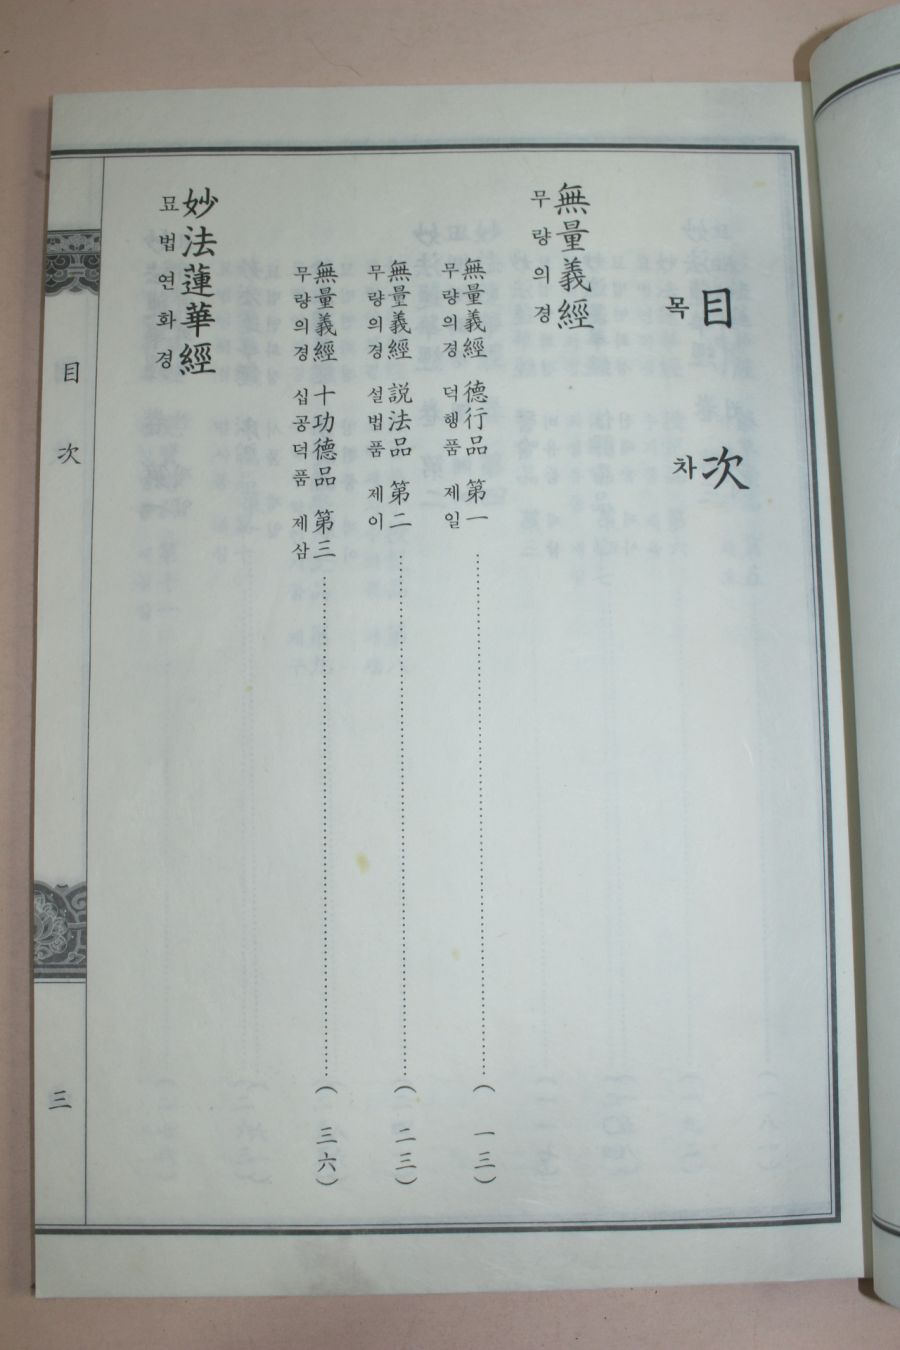 目次
목차
無量義經
무량의경
無量義經 德行品 第一 (一三)
무량의경 덕행품 제일
無量義經 説法品 第二 (二三)
무량의경 설법품 제이
無量義經 十功德品 第三 (三六)
무량의경 십공덕품 제삼
妙法蓮華經
묘법연화경
目次
三